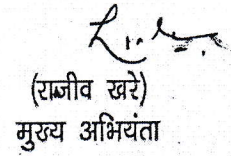 (राजीव खरे)
मुख्य अभियंता